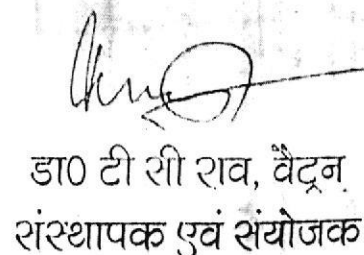 डा0 टी सी राव, वैट्रन
संस्थापक एवं संयोजक